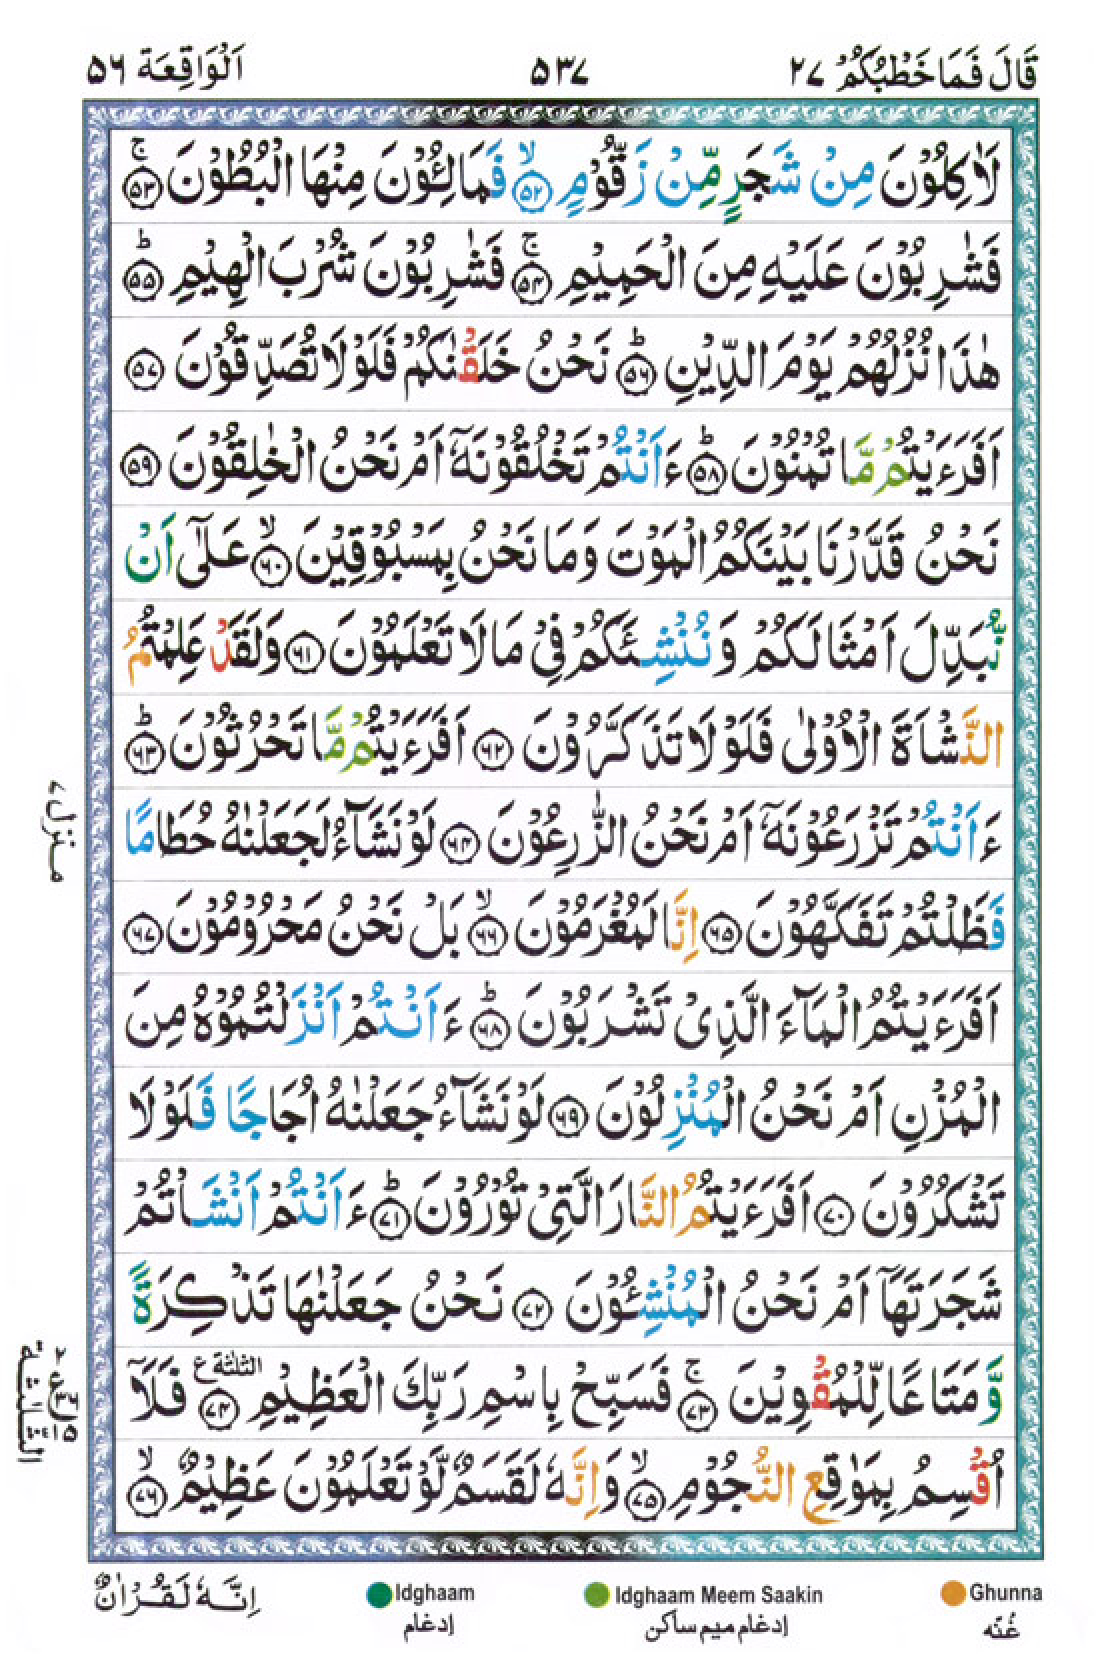 قَالَ فَمَا خَطْبُكُمْ ٢٧
٥٣٧
اَلْوَاقِعَة ٥٦
لَاٰكِلُوْنَ مِنْ شَجَرٍ مِّنْ زَقُّوْمٍ ۙ﴿٥٢﴾ فَمَالِـُٔوْنَ مِنْهَا الْبُطُوْنَ ۚ﴿٥٣﴾
فَشٰرِبُوْنَ عَلَيْهِ مِنَ الْحَمِيْمِ ۚ﴿٥٤﴾ فَشٰرِبُوْنَ شُرْبَ الْهِيْمِ ؕ﴿٥٥﴾
هٰذَا نُزُلُهُمْ يَوْمَ الدِّيْنِ ؕ﴿٥٦﴾ نَحْنُ خَلَقْنٰكُمْ فَلَوْلَا تُصَدِّقُوْنَ ﴿٥٧﴾
اَفَرَءَيْتُمْ مَّا تُمْنُوْنَ ؕ﴿٥٨﴾ ءَاَنْتُمْ تَخْلُقُوْنَهٗۤ اَمْ نَحْنُ الْخٰلِقُوْنَ ﴿٥٩﴾
نَحْنُ قَدَّرْنَا بَيْنَكُمُ الْمَوْتَ وَمَا نَحْنُ بِمَسْبُوْقِيْنَ ۙ﴿٦٠﴾ عَلٰۤى اَنْ
نُّبَدِّلَ اَمْثَالَكُمْ وَنُنْشِئَكُمْ فِيْ مَا لَا تَعْلَمُوْنَ ﴿٦١﴾ وَلَقَدْ عَلِمْتُمُ
النَّشْاَةَ الْاُوْلٰى فَلَوْلَا تَذَكَّرُوْنَ ﴿٦٢﴾ اَفَرَءَيْتُمْ مَّا تَحْرُثُوْنَ ؕ﴿٦٣﴾
ءَاَنْتُمْ تَزْرَعُوْنَهٗۤ اَمْ نَحْنُ الزّٰرِعُوْنَ ﴿٦٤﴾ لَوْ نَشَآءُ لَجَعَلْنٰهُ حُطَامًا
فَظَلْتُمْ تَفَكَّهُوْنَ ﴿٦٥﴾ اِنَّا لَمُغْرَمُوْنَ ۙ﴿٦٦﴾ بَلْ نَحْنُ مَحْرُوْمُوْنَ ﴿٦٧﴾
اَفَرَءَيْتُمُ الْمَآءَ الَّذِيْ تَشْرَبُوْنَ ؕ﴿٦٨﴾ ءَاَنْتُمْ اَنْزَلْتُمُوْهُ مِنَ
الْمُزْنِ اَمْ نَحْنُ الْمُنْزِلُوْنَ ﴿٦٩﴾ لَوْ نَشَآءُ جَعَلْنٰهُ اُجَاجًا فَلَوْلَا
تَشْكُرُوْنَ ﴿٧٠﴾ اَفَرَءَيْتُمُ النَّارَ الَّتِيْ تُوْرُوْنَ ؕ﴿٧١﴾ ءَاَنْتُمْ اَنْشَاْتُمْ
شَجَرَتَهَاۤ اَمْ نَحْنُ الْمُنْشِـُٔوْنَ ﴿٧٢﴾ نَحْنُ جَعَلْنٰهَا تَذْكِرَةً
وَّمَتَاعًا لِّلْمُقْوِيْنَ ۚ﴿٧٣﴾ فَسَبِّحْ بِاسْمِ رَبِّكَ الْعَظِيْمِ الثلثة ع ﴿٧٤﴾ فَلَاۤ
اُقْسِمُ بِمَوٰقِعِ النُّجُوْمِ ۙ﴿٧٥﴾ وَاِنَّهٗ لَقَسَمٌ لَّوْ تَعْلَمُوْنَ عَظِيْمٌ ۙ﴿٧٦﴾
منزل ٧
اِنَّهٗ لَقُرْاٰنٌ
Idghaam
إدغام
Idghaam Meem Saakin
إدغام ميم ساكن
Ghunna
غُنّه